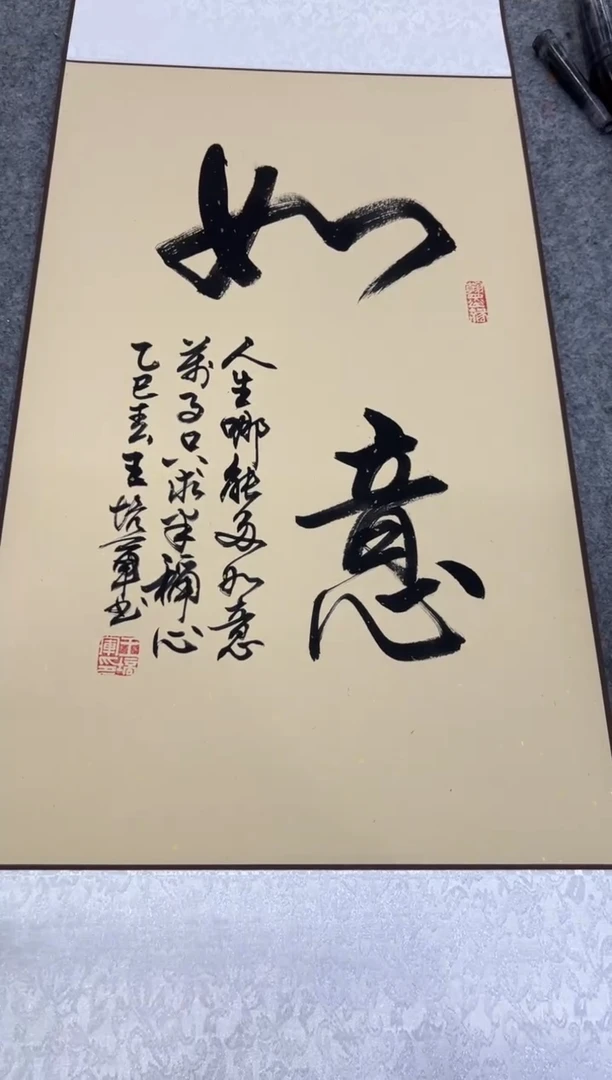 如意
人生哪能多如意
萬事只求半稱心
乙巳春王培軍书